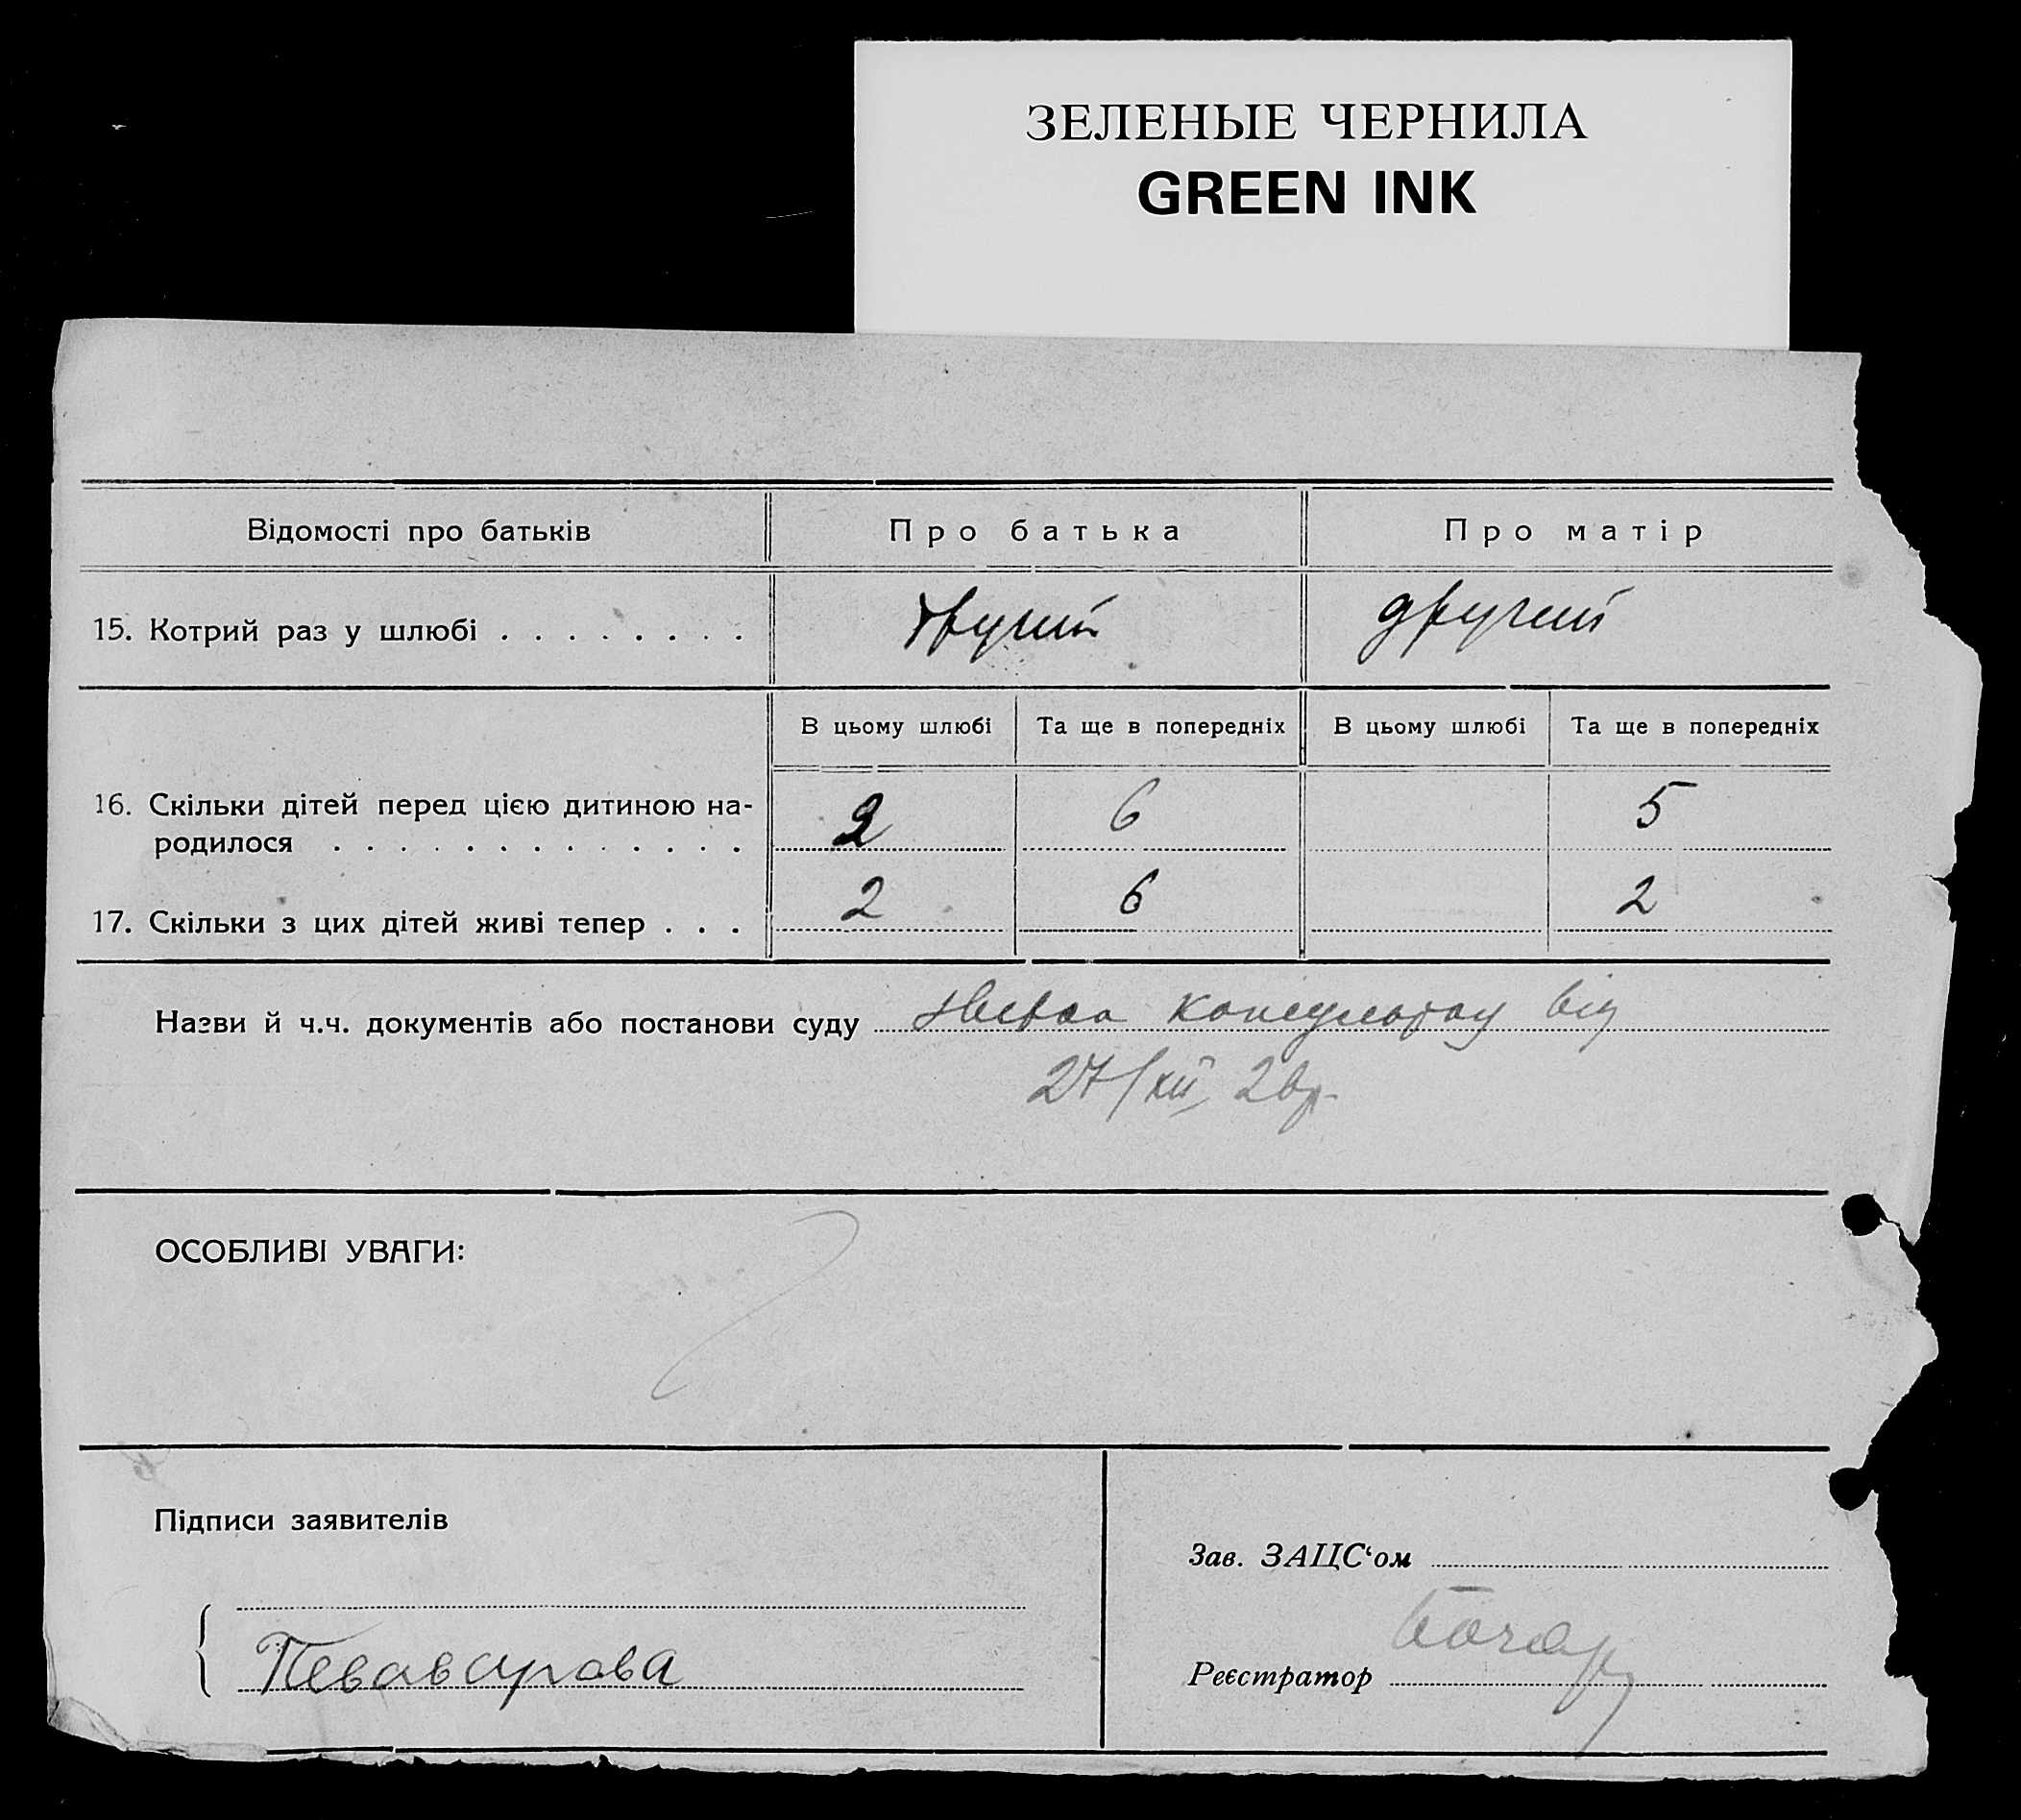 ЗЕЛЕНЫЕ ЧЕРНИЛА
GREEN INK
Відомості про батьків Про батька Про матір
15. Котрий раз у шлюбі другий другий
В цьому шлюбі Та ще в попередніх В цьому шлюбі Та ще в попередніх
16. Скільки дітей перед цією дитиною на-
родилося 2 6 5
17. Скільки з цих дітей живі тепер . . . 2 6 2
Назви й ч.ч. документів або постанови суду від
27/XII
ОСОБЛИВІ УВАГИ:
Підписи заявителів
Зав. ЗАЦС‘ом
Реєстратор